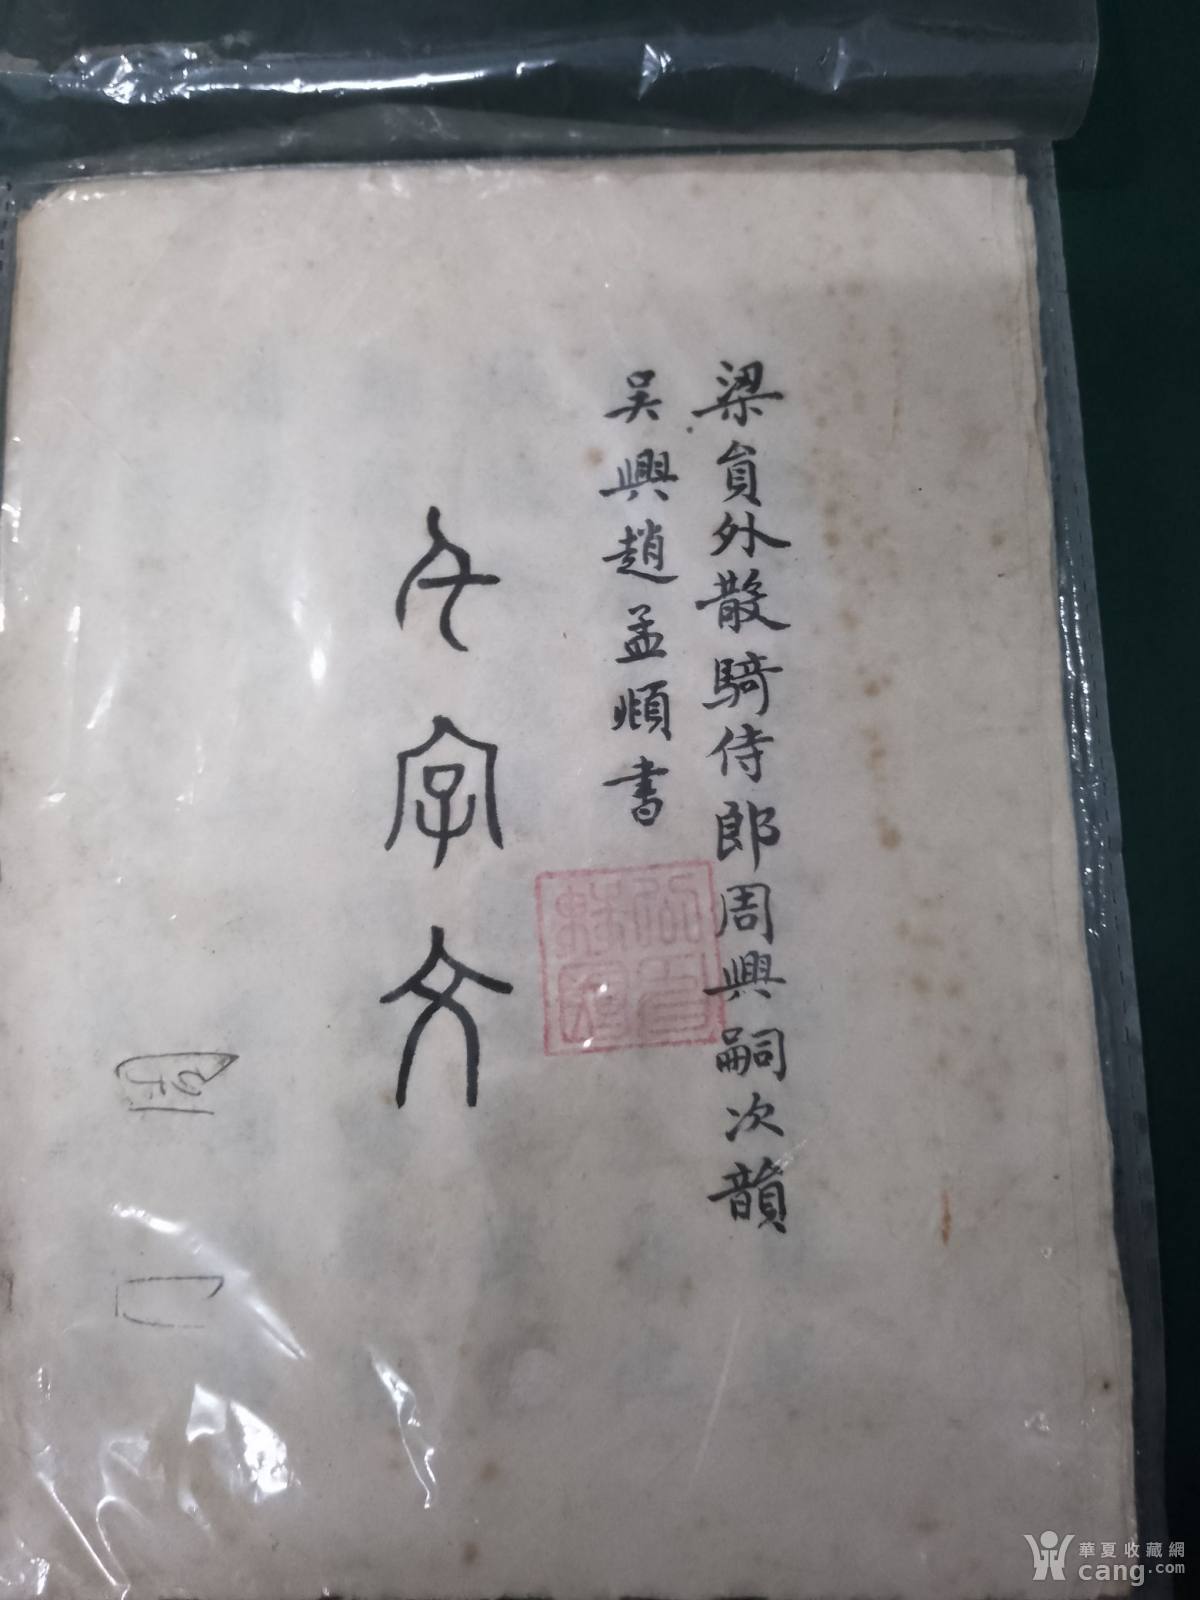 梁員外散騎侍郎周興嗣次韻
吳興趙孟頫書
千字文
華夏收藏網
cang.com